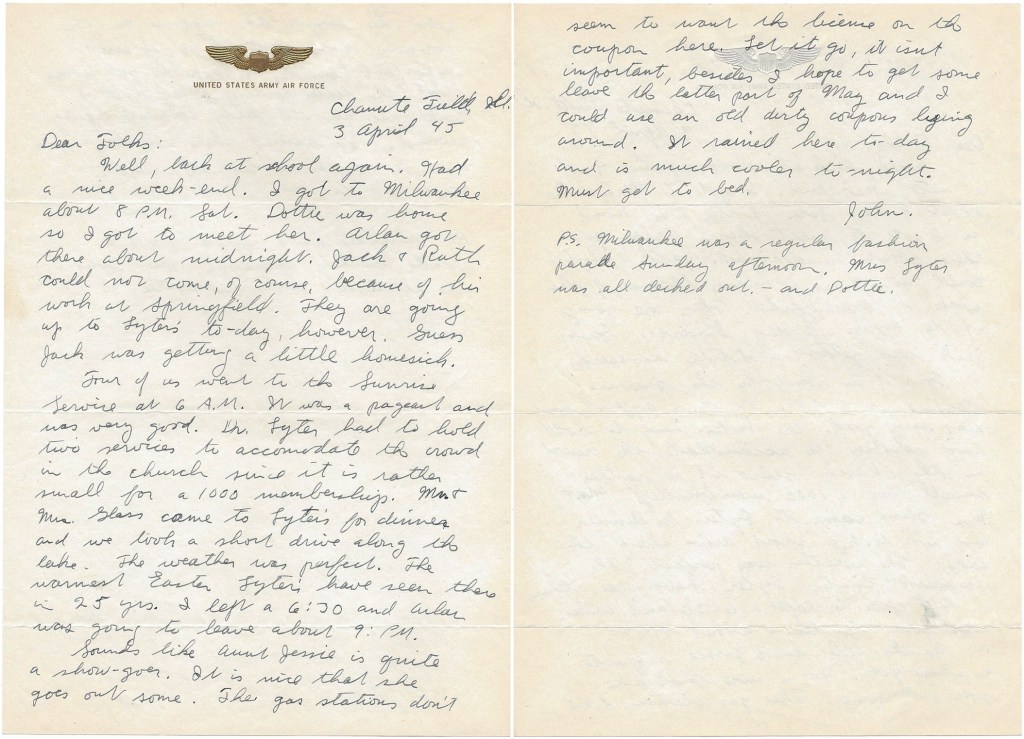 UNITED STATES ARMY AIR FORCE
Chanute Field, Ill.
3 April 45
Dear Folks:
Well, back at school again. Had
a nice week-end. I got to Milwaukee
about 8 P.M. Sat. Dottie was home
so I got to meet her. Arlan got
there about midnight. Jack & Ruth
could not come, of course, because of his
work at Springfield. They are going
up to Lyter's to-day, however. Guess
Jack was getting a little homesick.
Four of us went to the Sunrise
Service at 6 A.M. It was a pageant and
was very good. Dr. Lyter had to hold
two services to accomodate the crowd
in the church since it is rather
small for a 1000 membership. Mr. &
Mrs. Glass came to Lyter's for dinner
and we took a short drive along the
lake. The weather was perfect. The
warmest Easter Lyter's have seen there
in 25 yrs. I left a 6:30 and Arlan
was going to leave about 9: P.M.
Sounds like Aunt Jessie is quite
a show-goer. It is nice that she
goes out some. The gas stations don't
seem to want the license on the
coupon here. Let it go, it isnt
important, besides I hope to get some
leave the latter part of May and I
could use an old dirty coupons lieing
around. It rained here to-day
and is much cooler to-night.
Must get to bed.
John.
P.S. Milwaukee was a regular fashion
parade Sunday afternoon. Mrs Lyter
was all decked out. - and Dottie.